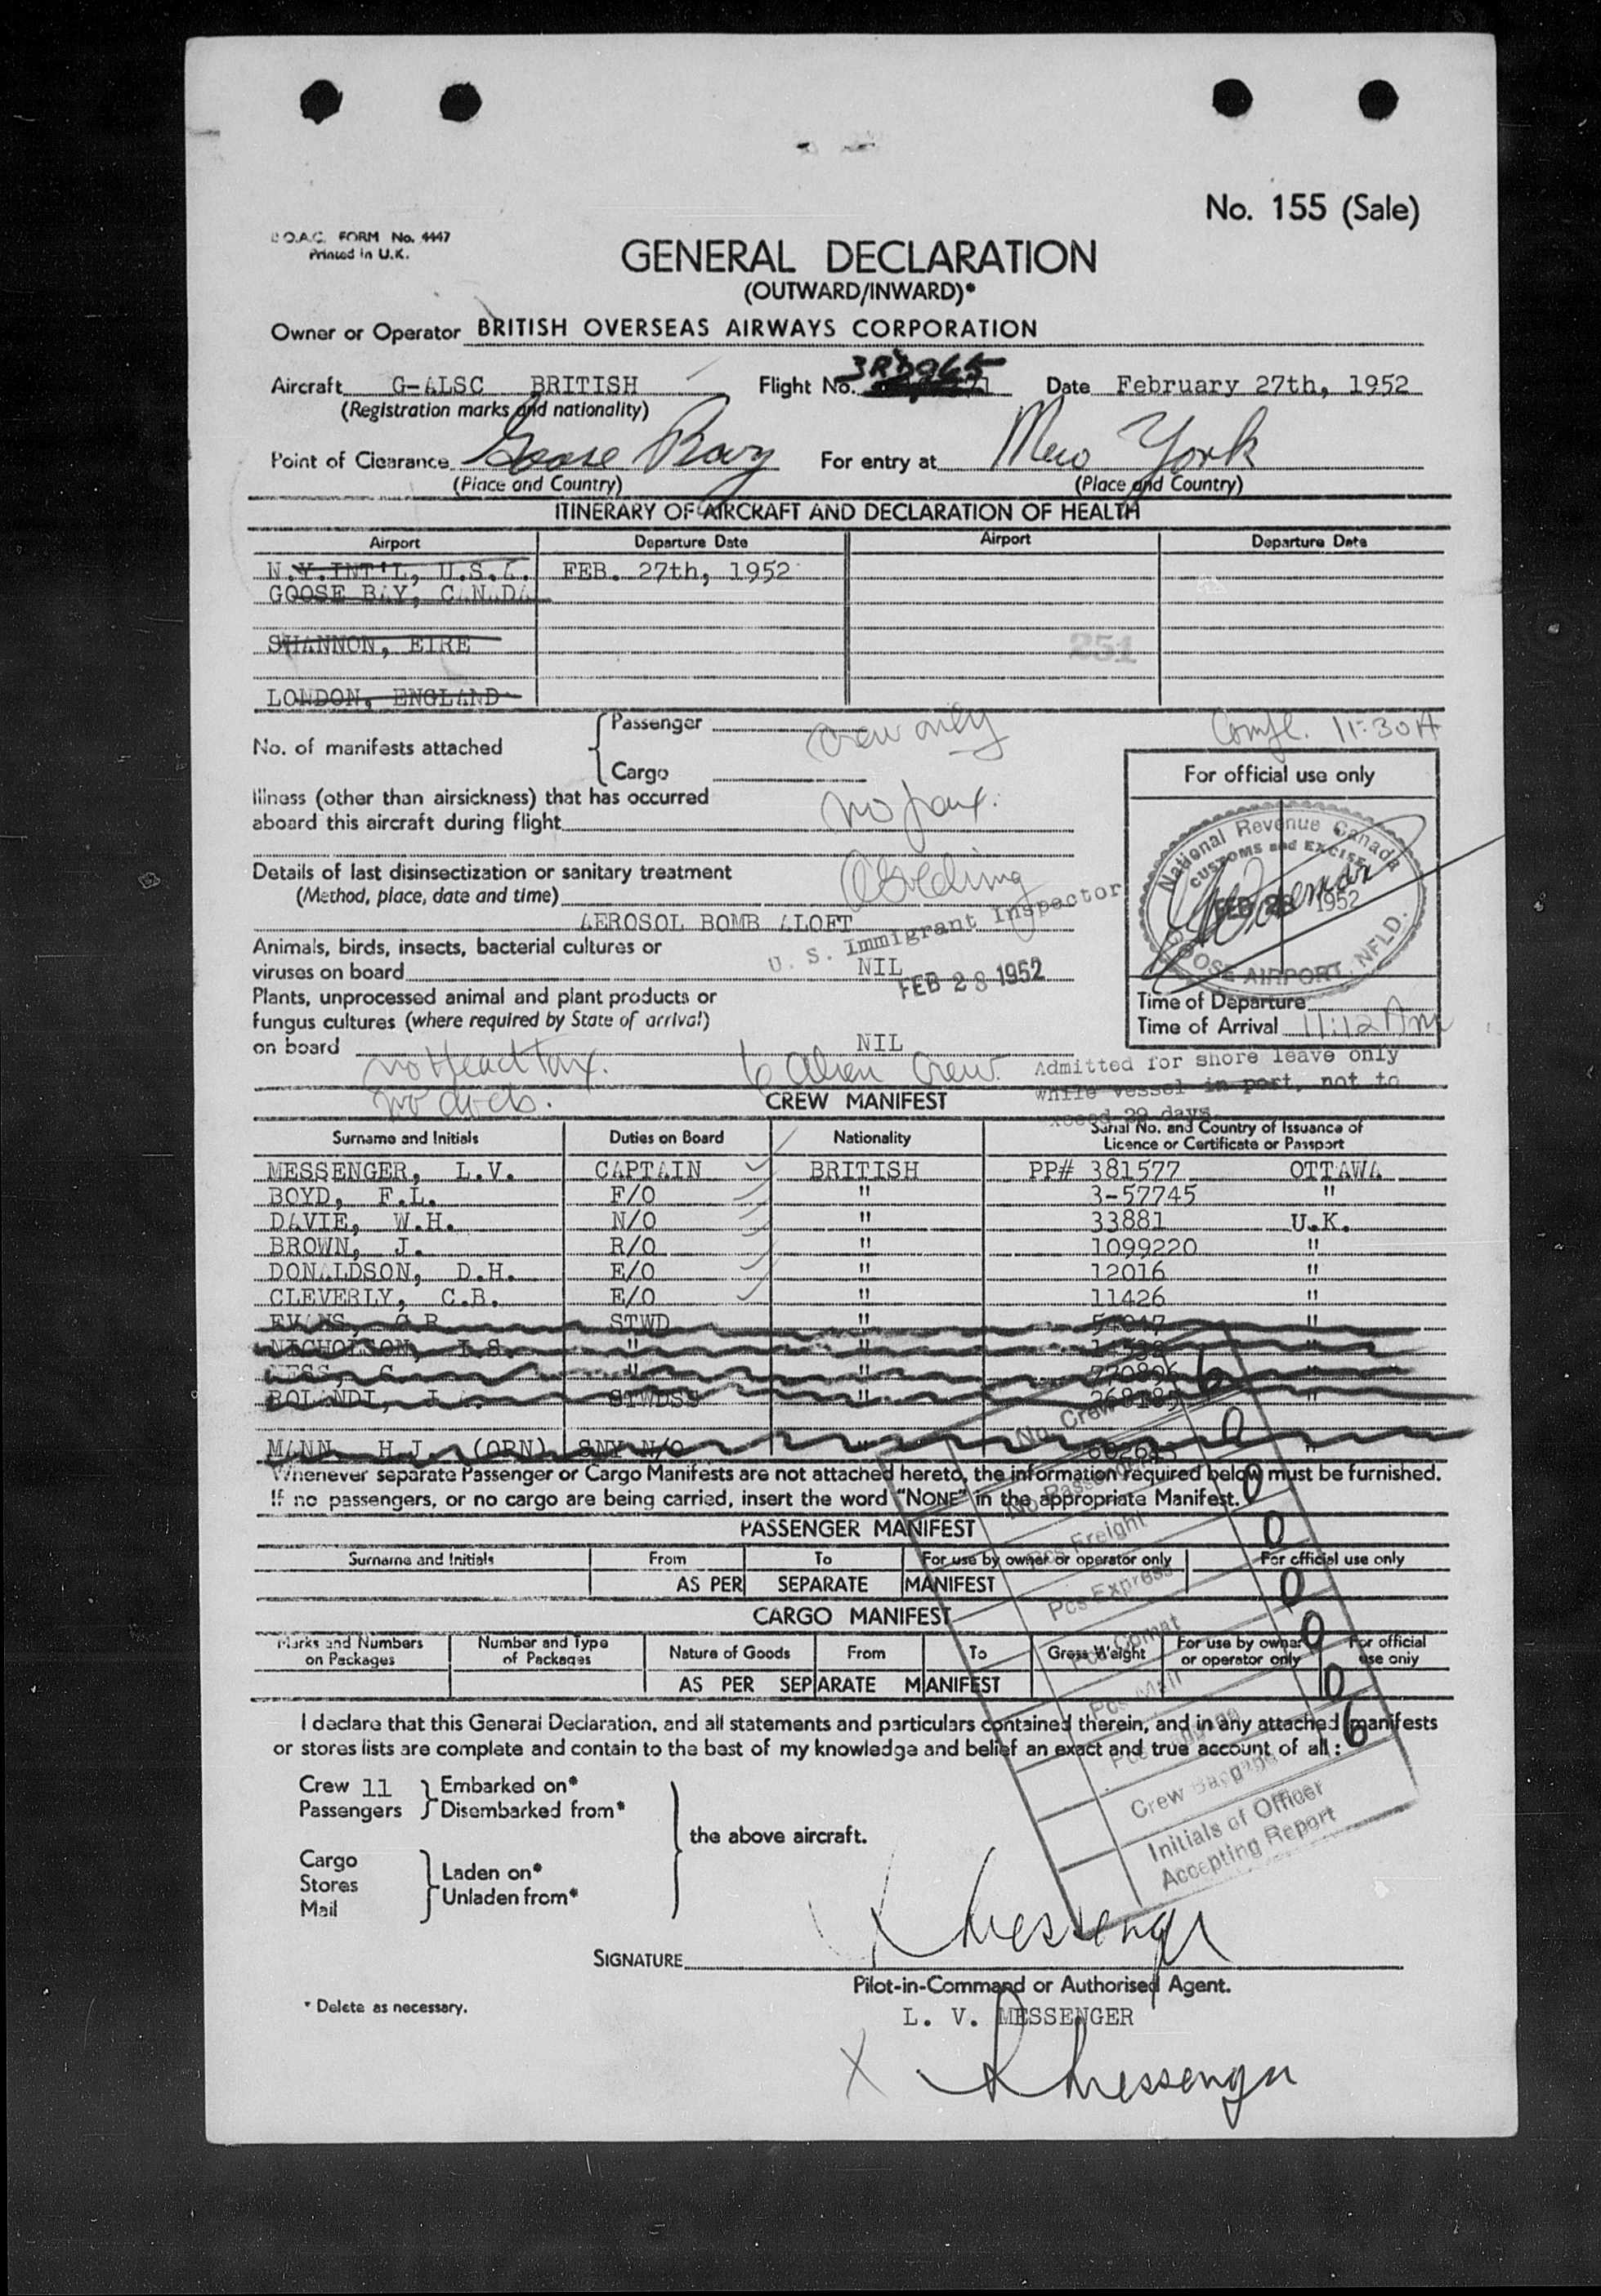 No. 155 (Sale)
B.O.A.C. FORM No. 4447
Printed in U.K.
GENERAL DECLARATION
(OUTWARD/INWARD)*
Owner or Operator BRITISH OVERSEAS AIRWAYS CORPORATION
Aircraft G-ALSC BRITISH Flight No. Date February 27th, 1952
(Registration marks and nationality)
Point of Clearance Goose Bay For entry at New York
(Place and Country) (Place and Country)
ITINERARY OF AIRCRAFT AND DECLARATION OF HEALTH
Airport Departure Date Airport Departure Date
N.Y.INT'L, U.S.A. FEB. 27th, 1952
GOOSE BAY, CANADA
SHANNON, EIRE
251
LONDON, ENGLAND
Passenger crew only
Compl. 11:30A
No. of manifests attached
Cargo
For official use only
Illness (other than airsickness) that has occurred
aboard this aircraft during flight no pax.
National Revenue Canada
CUSTOMS and EXCISE
FEB 28 1952
GOOSE AIRPORT, NFLD.
Details of last disinsectization or sanitary treatment
(Method, place, date and time)
AEROSOL BOMB ALOFT
U. S. Immigrant Inspector
Animals, birds, insects, bacterial cultures or
viruses on board NIL
FEB 28 1952
Plants, unprocessed animal and plant products or
fungus cultures (where required by State of arrival)
on board NIL
Time of Departure
Time of Arrival 11:12 Am
no Head Tax. 6 Alien Crew. Admitted for shore leave only
while vessel in port, not to
exceed 29 days
no docts.
CREW MANIFEST
Surname and Initials Duties on Board Nationality Serial No. and Country of Issuance of
Licence or Certificate or Passport
MESSENGER, L.V. CAPTAIN BRITISH PP# 381577 OTTAWA
BOYD, F.L. F/O " 3-57745 "
DAVIE, W.H. N/O " 33881 U.K.
BROWN, J. R/O " 1099220 "
DONALDSON, D.H. E/O " 12016 "
CLEVERLY, C.B. E/O " 11426 "
EVANS, STWD " "
NICHOLSON, I.S. " " "
" " 770896 "
ROLANDI, J. STWDSS " "
MANN H.J. (ORN) SNY N/O " "
Whenever separate Passenger or Cargo Manifests are not attached hereto, the information required below must be furnished.
If no passengers, or no cargo are being carried, insert the word "NONE" in the appropriate Manifest.
PASSENGER MANIFEST
Surname and Initials From To For use by owner or operator only For official use only
AS PER SEPARATE MANIFEST
CARGO MANIFEST
Marks and Numbers on Packages Number and Type of Packages Nature of Goods From To Gross Weight For use by owner or operator only For official use only
AS PER SEPARATE MANIFEST
No. Crew 6
No Passengers 0
Pcs Freight 0
Pcs Express 0
Pcs Comat 0
Pcs Mail 0
Pcs Baggage 0
Crew Baggage 6
Initials of Officer
Accepting Report
I declare that this General Declaration, and all statements and particulars contained therein, and in any attached manifests
or stores lists are complete and contain to the best of my knowledge and belief an exact and true account of all:
Crew 11 Embarked on*
Passengers Disembarked from*
the above aircraft.
Cargo
Stores
Mail
Laden on*
Unladen from*
SIGNATURE L Messenger
Pilot-in-Command or Authorised Agent.
* Delete as necessary.
L. V. MESSENGER
X L Messenger